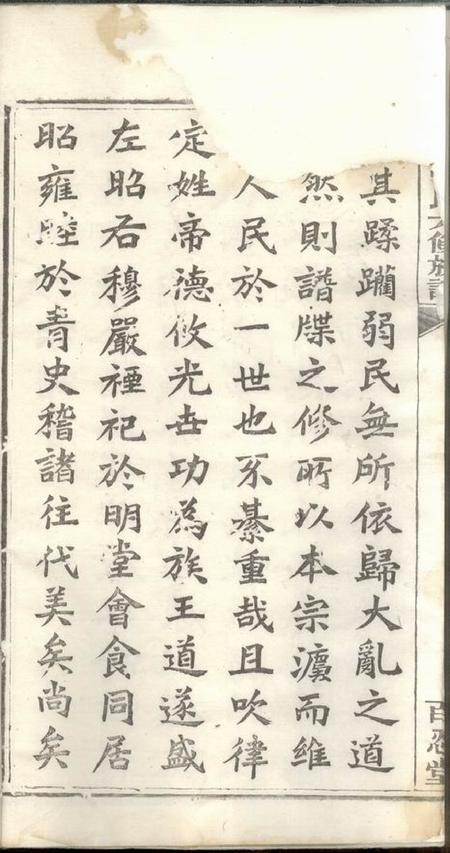 其蹂躪弱民無所依歸大亂之道
然則譜牒之修所以本宗瀆而維
人民於一世也不綦重哉且吹律
定姓帝德攸光世功為族王道遂盛
左昭右穆嚴禋祀於明堂會食同居
昭雍睦於青史稽諸往代美矣尚矣
修族譜
百忍堂